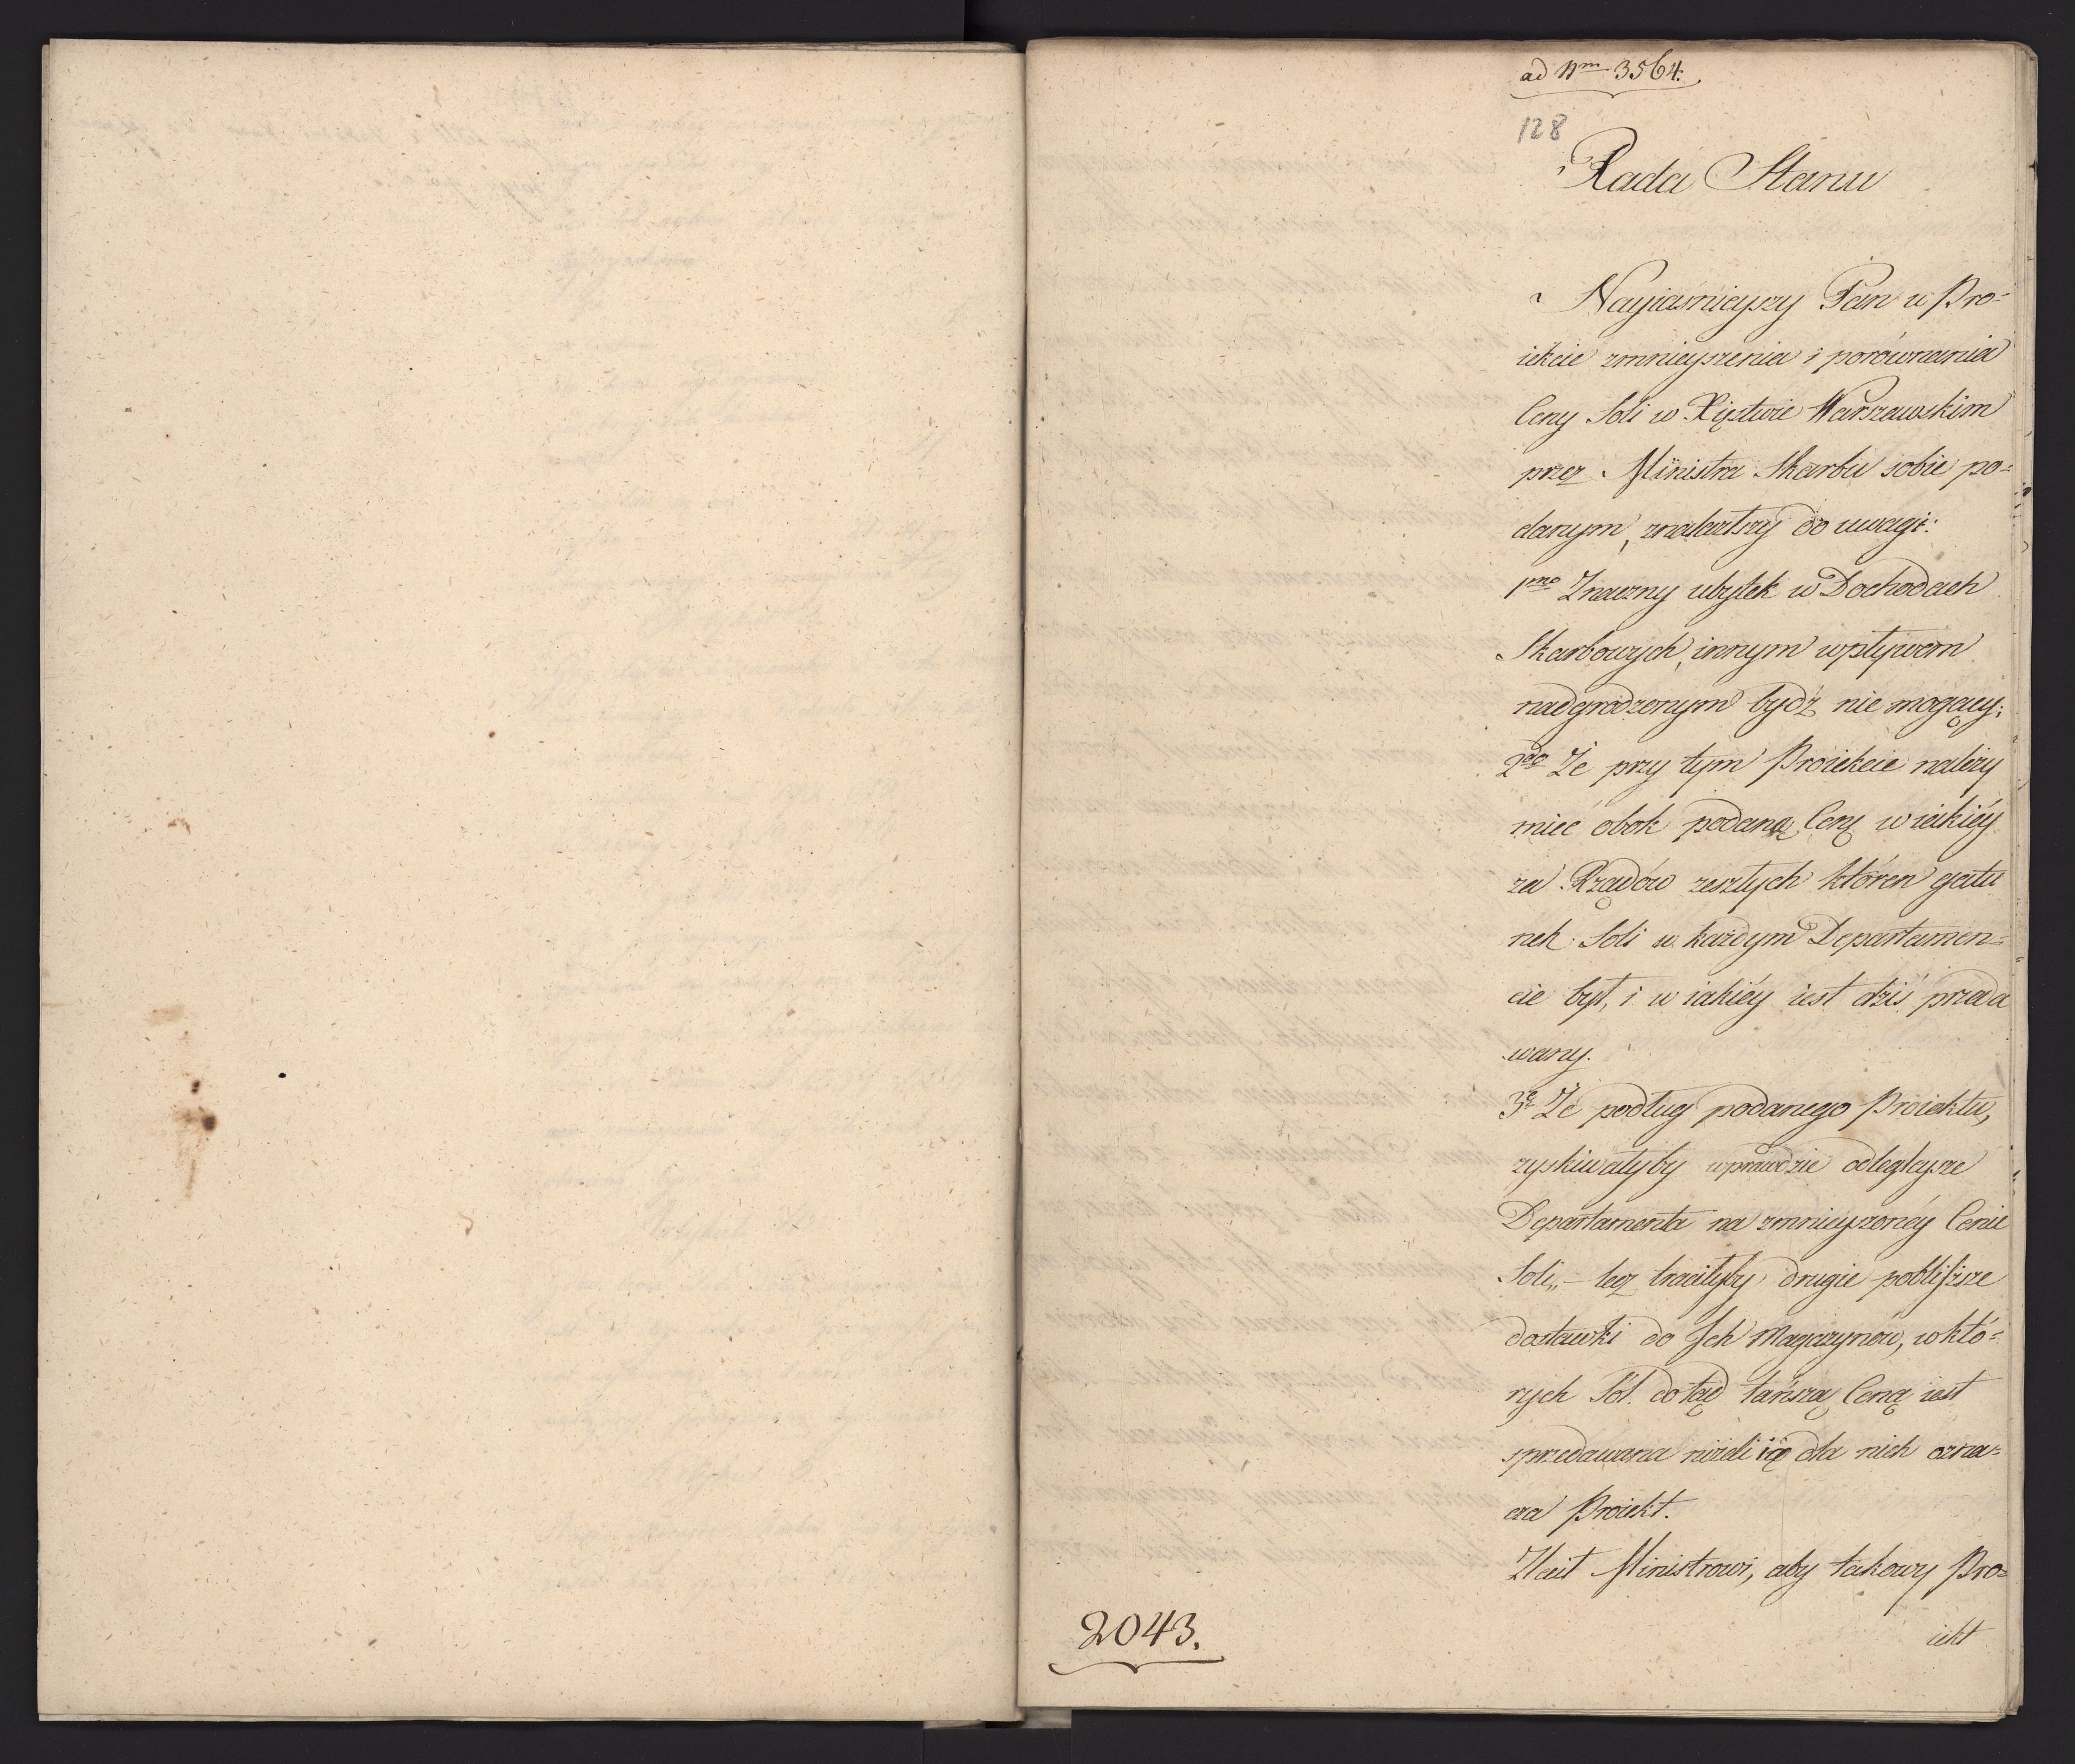 ad Nm 3564.
128
Rada Stanu
Nayiaśnieyszy Pan w Pro=
iekcie zmnieyszenia i porównania
Ceny Soli w Xięstwie Warszawskim
przez Ministra Skarbu sobie po=
danym, znalazłszy do uwagi:
1mo Znaczny ubytek w Dochodach
Skarbowych, innym wpływem
nadgrodzonym bydź nie mogący;
2do Że przy tym Proiekcie należy
mieć obok podaną Cenę w iakiéy
za Rządów zeszłych któren gatu
nek Soli w każdym Departamen=
cie był, i w iakiéy iest dziś przeda
wany.
3o Że podług podanego Proiektu,
zyskiwałyby wprawdzie odległeysze
Departamenta na zmnieyszonéy Cenie
Soli, – lecz traciłyby drugie pobliższe
dostawki do Ich Magazynów, w któ=
rych Sól dotąd tańszą Ceną iest
sprzedawana niżeli ią dla nich ozna=
cza Proiekt.
Zlecił Ministrowi, aby takowy Pro=
iekt
2043.